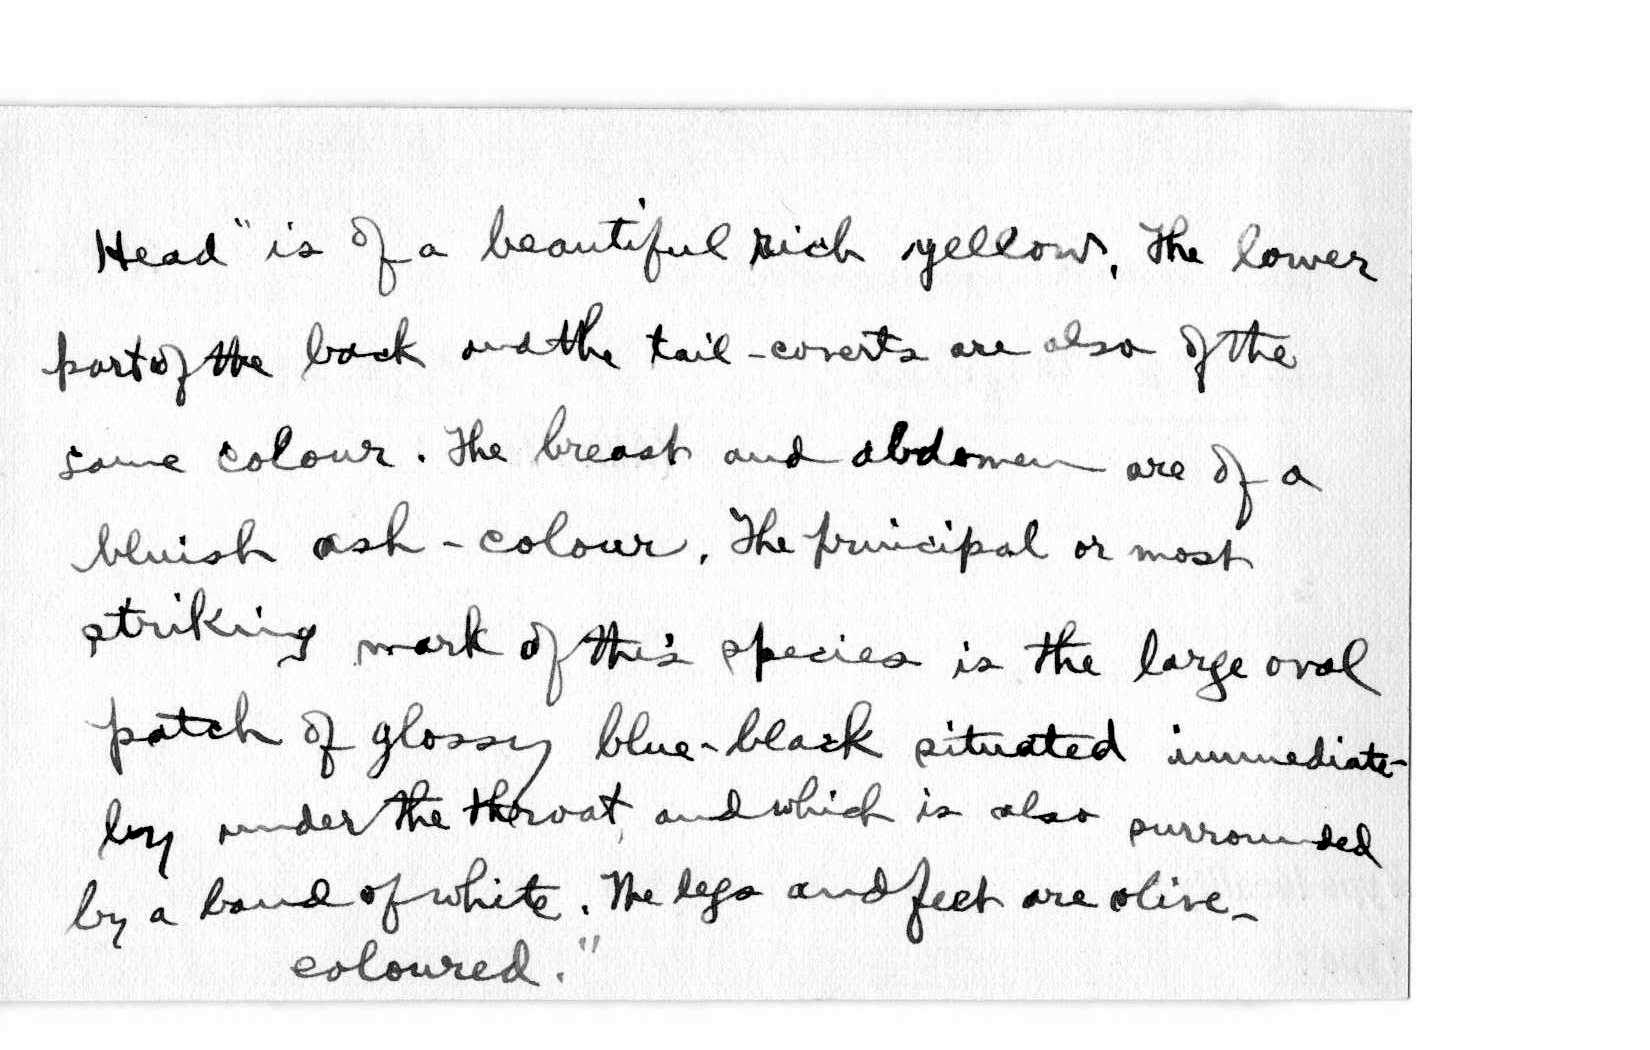 Head" is of a beautiful rich yellow. The lower
part of the back and the tail-coverts are also of the
same colour. The breast and abdomen are of a
bluish ash-colour. The principal or most
striking mark of this species is the large oval
patch of glossy blue-black situated immediate-
ly under the throat, and which is also surrounded
by a band of white. The legs and feet are olive-
coloured."